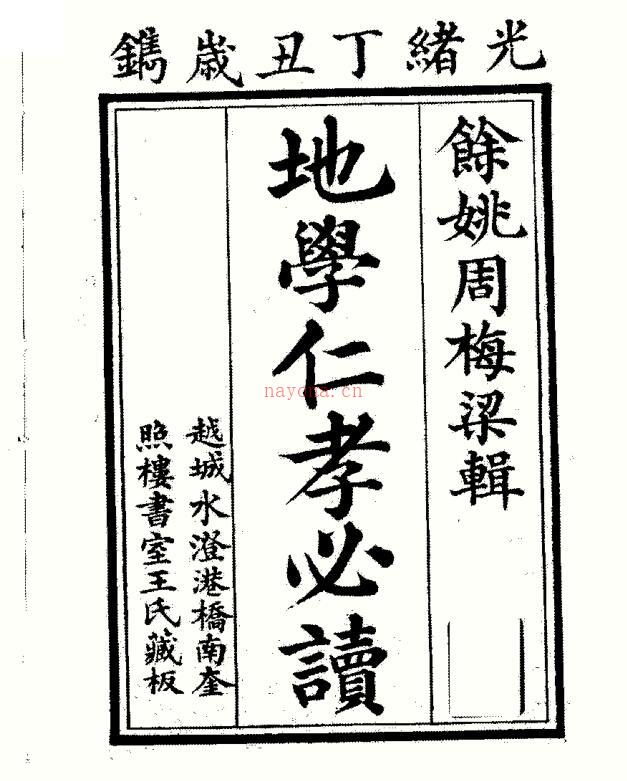 光緒丁丑歲鐫
餘姚周梅梁輯
地學仁孝必讀
越城水澄港橋南奎
照樓書室王氏藏板
nayona.cn